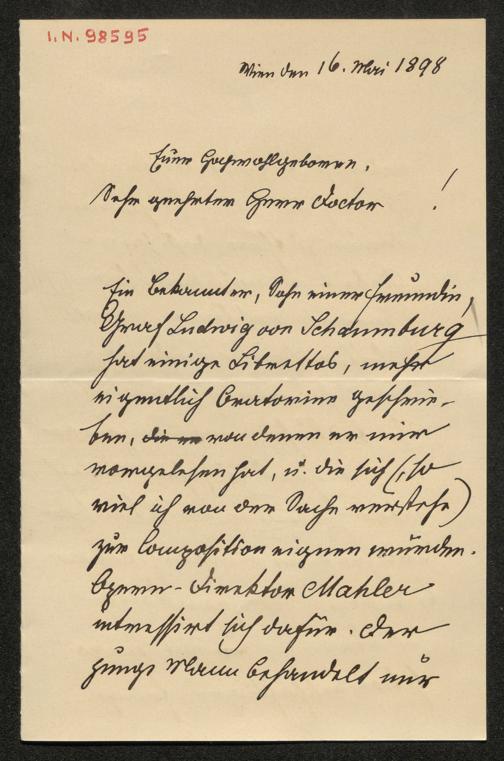 I.N. 98595
Wien den 16. Mai 1898
Euer Hochwohlgeboren,
Sehr geehrter Herr Doctor !
Ein Bekannter, Sohn einer Freundin,
Graf Ludwig von Schaumburg
hat einige Librettos, mehr
eigentlich Oratorien geschrie-
ben, die er von denen er mir
vorgelesen hat, u. die sich (, so
viel ich von der Sache verstehe)
zur Composition eignen würden.
Opern-Direktor Mahler
intressirt sich dafür. Der
junge Mann behandelt nur